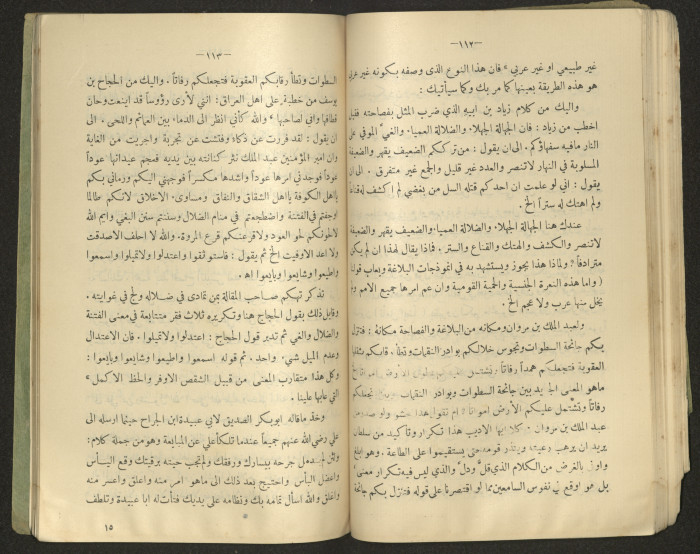 — ١١٢ —
غير طبيعي او غير عربي » فان هذا النوع الذى وصفه بكونه غير عربي
هو هذه الطريقة بعينها كما مر بك وكما سيأتيك :
واليك من كلام زياد بن ابيه الذي ضرب المثل بفصاحته فقيل
اخطب من زياد : فان الجهالة الجهلاء والضلالة العمياء والغي الموفي على
النار مافيه سفهاؤكم . الى ان يقول : من ترككم الضعيف يقهر والضعيفة
المسلوبة في النهار لا تنصر والعدد غير قليل والجمع غير متفرق . الى
يقول : اني لو علمت ان احدكم قتله السل من بغضي لم اكشف له قناعاً
ولم اهتك له ستراً الخ .
عندك هنا الجهالة الجهلاء والضلالة العمياء والضعيف يقهر والضعيفة
لا تنصر والكشف والهتك والقناع والستر . فماذا يقال لهذا ان لم يكن
مترادفاً ؟ ولماذا هذا يجوز ويستشهد به في انموذجات البلاغة ويعاب قولنا
( واما هذه النعرة الجنسية والحمية القومية وان عم امرها جميع الامم ولم
يخل منها عرب ولا عجم الخ .
ولعبد الملك بن مروان ومكانه من البلاغة والفصاحة مكانه : فتنزل
بكم جائحة السطوات وتجوس خلالكم بوادر النقمات وتطأ رقابكم بثقلها
العقوبة فتجعلكم همداً رفاتاً وتشتمل عليكم بطون الارض امواتاً الخ
ماهو المعنى الجديد بين جائحة السطوات وبوادر النقمات وبين تجعلكم
رفاتاً وتشتمل عليكم الأرض امواتاً ؟ ام تقول هذا حشو ولو صدر من
عبد الملك بن مروان . كلا ايها الاديب هذا تكرار وتأكيد من سلطان
يريد ان يرهب رعيته وينذر قومه حتى يستقيموا على الطاعة . وهو ابلغ
واوفى بالغرض من الكلام الذي قل ودل والذي ليس فيه تكرار معنى
بل هو اوقع في نفوس السامعين مما لو اقتصرنا على قوله فتنزل بكم جائحة
— ١١٣ —
السطوات وتطأ رقابكم العقوبة فتجعلكم رفاتاً . واليك من الحجاج بن
يوسف من خطبة على اهل العراق : انني لأرى رؤوساً قد اينعت وحان
قطافها واني لصاحبها « والله كأني انظر الى الدماء بين العمائم واللحى . الى
ان يقول : لقد فررت عن ذكاء وفتشت عن تجربة واجريت من الغاية
وان امير المؤمنين عبد الملك نثر كنانته بين يديه فعجم عيدانها عوداً
عوداً فوجدني امرها عوداً واشدها مكسراً فوجهني اليكم ورماني بكم
يا اهل الكوفة يا اهل الشقاق والنفاق ومساوئ الاخلاق لانكم طالما
اوضعتم في الفتنة واضطجعتم في منام الضلال وسننتم سنن البغي وايم الله
لألحونكم لحو العود ولاقرعنكم قرع المروة . والله لا احلف الا صدقت
ولا اعد الا وفيت الخ ثم يقول : فاستوثقوا واعتدلوا ولا تميلوا واسمعوا
واطيعوا وشايعوا وبايعوا اه .
تذكر تهكم صاحب المقالة بمن تمادى في ضلاله ولج في غوايته .
وقابل ذلك بقول الحجاج هنا وتكريره ثلاث فقر متتابعة في معنى الفتنة
والضلال والغي ثم تدبر قول الحجاج : اعتدلوا ولا تميلوا . فان الاعتدال
وعدم الميل شيء واحد . ثم قوله اسمعوا واطيعوا وشايعوا وبايعوا :
وكل هذا متقارب المعنى من قبيل الشقص الاوفر والحظ الاكمل »
التي عابها علينا .
وخذ ماقاله ابو بكر الصديق لابي عبيدة ابن الجراح حينما ارسله الى
علي رضي الله عنهم جميعاً عندما تلكأ علي عن المبايعة وهو من جملة كلام :
ولئن لم يندمل جرحه بيسارك ورفقك ولم تجب حيته برقيتك وقع اليأس
واعضل البأس واحتيج بعد ذلك الى ماهو امر منه واعلق واعسر منه
واغلق والله اسأل تمامه بك ونظامه على يديك فتأت له ابا عبيدة وتلطف
١٥